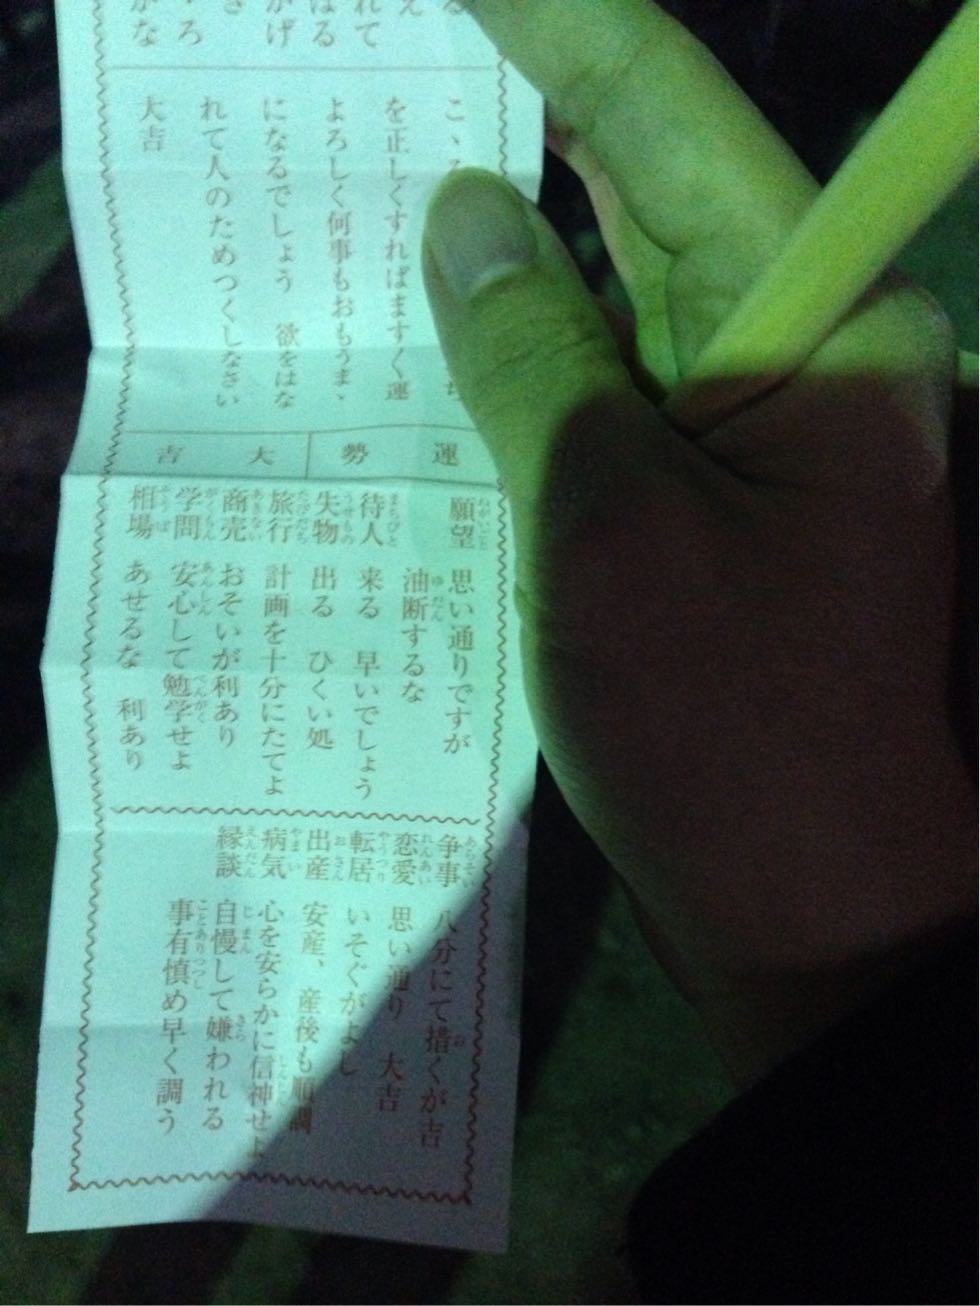 る
え
れて
はる
かげ
さ
ろ
かな
こゝろ ち
を正しくすればますく運
よろしく何事もおもうまゝ
になるでしょう 欲をはな
れて人のためつくしなさい
大吉
運勢 大吉
願望 思い通りですが
油断するな
待人 来る 早いでしょう
失物 出る ひくい処
旅行 計画を十分にたてよ
商売 おそいが利あり
学問 安心して勉学せよ
相場 あせるな 利あり
争事 八分にて措くが吉
恋愛 思い通り 大吉
転居 いそぐがよし
出産 安産、産後も順調
病気 心を安らかに信神せよ
縁談 自慢して嫌われる
事有慎め早く調う